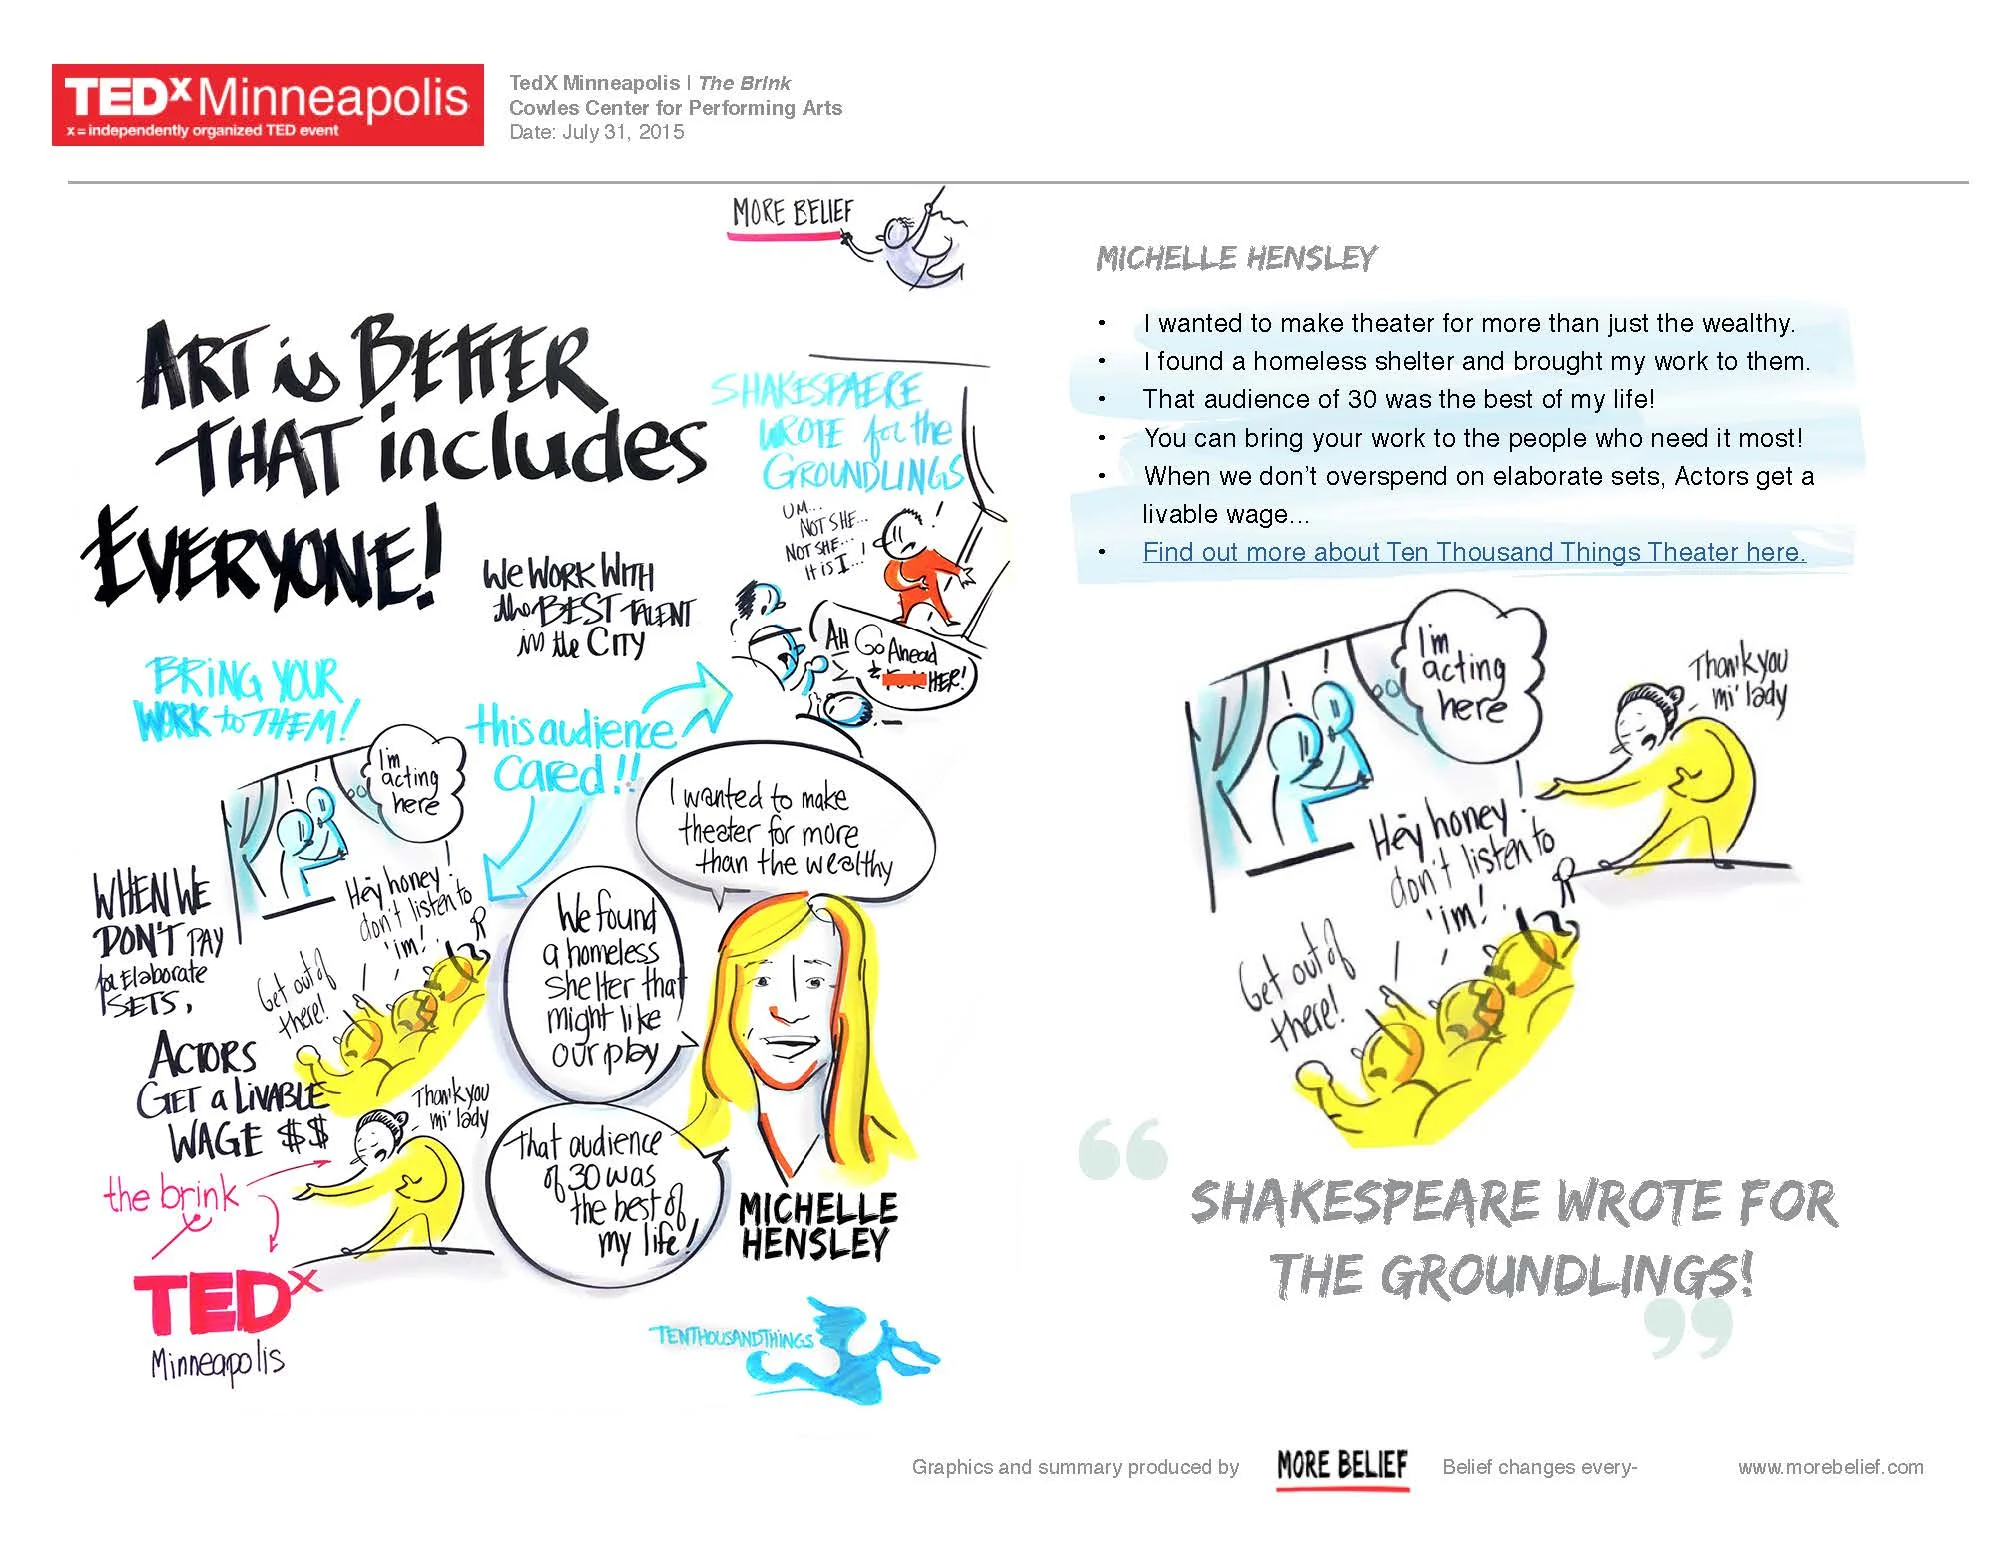 TEDx Minneapolis
x = independently organized TED event
TedX Minneapolis | The Brink
Cowles Center for Performing Arts
Date: July 31, 2015
MORE BELIEF
ART is BETTER
THAT includes
EVERYONE!
SHAKESPAERE
WROTE for the
GROUNDLINGS
UM...
NOT SHE...
NOT SHE...
It is I...!
AH Go Ahead
HER!
We WORK WITH
the BEST TALENT
in the CITY
BRING YOUR
WORK to THEM!
this audience
cared!!
I'm
acting
here
Hey honey!
don't listen to
'im!
Get out of
there!
WHEN WE
DON'T PAY
for Elaborate
SETS,
ACTORS
GET a LIVABLE
WAGE $$
Thank you
mi' lady
I wanted to make
theater for more
than the wealthy
We found
a homeless
shelter that
might like
our play
That audience
of 30 was
the best of
my life!
MICHELLE
HENSLEY
the brink
TEDx
Minneapolis
TENTHOUSANDTHINGS
MICHELLE HENSLEY
• I wanted to make theater for more than just the wealthy.
• I found a homeless shelter and brought my work to them.
• That audience of 30 was the best of my life!
• You can bring your work to the people who need it most!
• When we don't overspend on elaborate sets, Actors get a
livable wage...
• Find out more about Ten Thousand Things Theater here.
I'm
acting
here
Thank you
mi' lady
Hey honey!
don't listen to
'im!
Get out of
there!
“SHAKESPEARE WROTE FOR
THE GROUNDLINGS!”
Graphics and summary produced by MORE BELIEF Belief changes every- www.morebelief.com